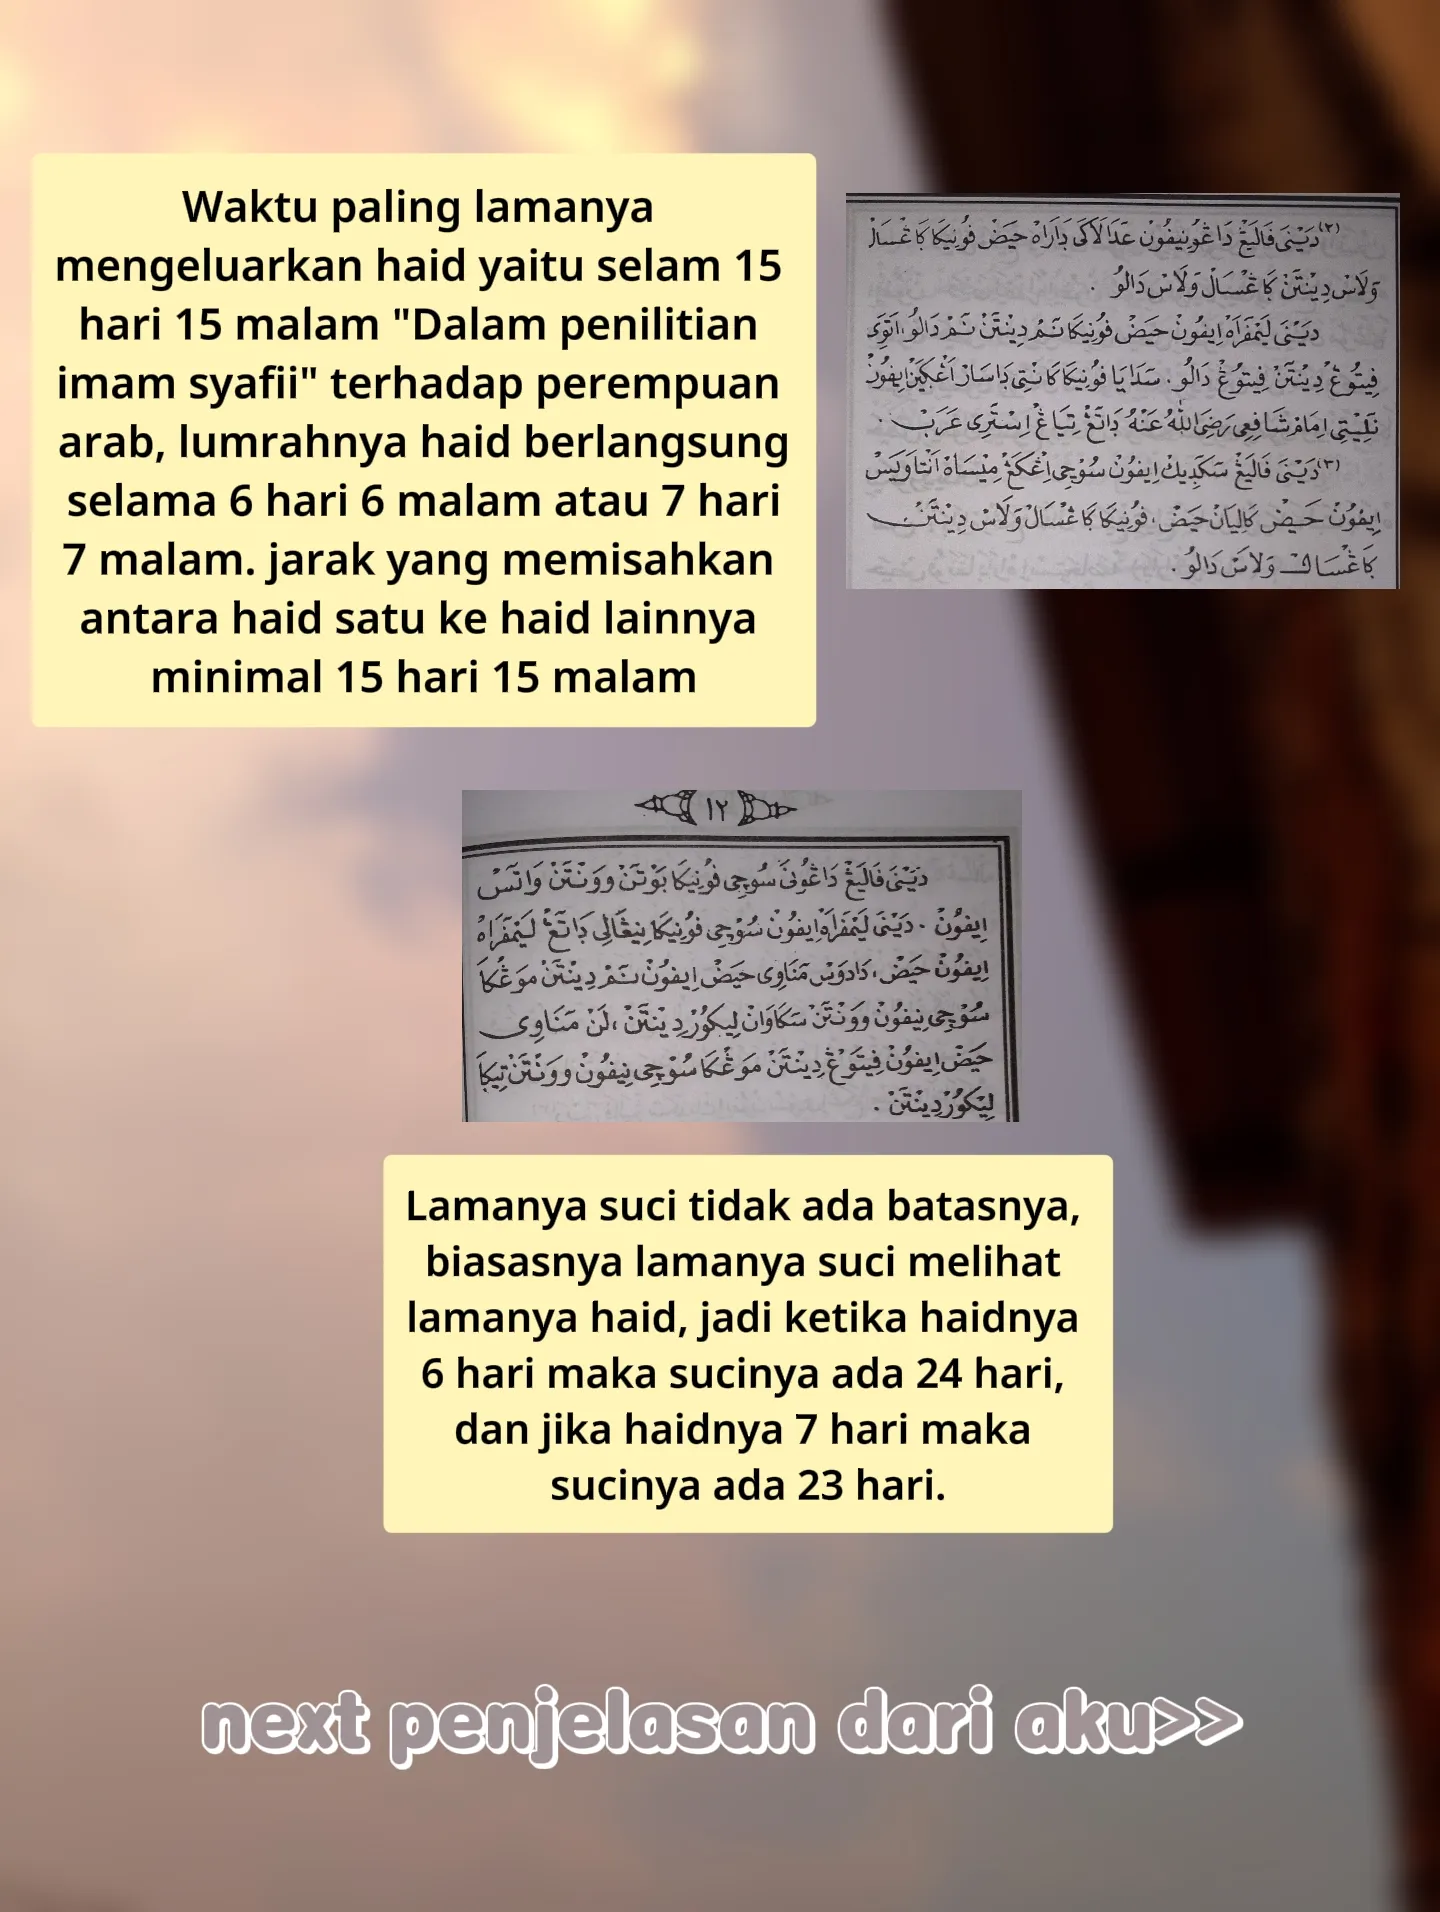 Waktu paling lamanya
mengeluarkan haid yaitu selam 15
hari 15 malam "Dalam penilitian
imam syafii" terhadap perempuan
arab, lumrahnya haid berlangsung
selama 6 hari 6 malam atau 7 hari
7 malam. jarak yang memisahkan
antara haid satu ke haid lainnya
minimal 15 hari 15 malam
(٢) دَيْنَى فَالَيْڠْ دَاڠُونِيفُونْ عَدَالَاكَى دَارَاهْ حَيَضْ فُونِيكَا كَاڠْسَالْ
وَلَاسْ دِينْتَنْ كَاڠْسَالْ وَلَاسْ دَالُو .
دَيْنَى لَيْمْفَرَاهْ اِيفُونْ حَيَضْ فُونِيكَا نَمْ دِينْتَنْ نَمْ دَالُو، اَتَوِى
فِيتُوڠْ دِينْتَنْ فِيتُوڠْ دَالُو. سَدَايَا فُونِيكَا كَانَتِى دَاسَارْ اَڠْكَيْنْ اِيفُونْ
نَلِيْتِى اِمَامْ شَافِعِى رَضِىَ اللهُ عَنْهُ دَاتَڠْ تِيَاڠْ اِسْتَرِى عَرَبْ .
(٣) دَيْنَى فَالَيْڠْ سَكَدِيكْ اِيفُونْ سُوْچِى اِڠْكَڠْ مِيْسَاهْ اَنْتَاوَيْسْ
اِيفُونْ حَيَضْ كَالِيَانْ حَيَضْ، فُونِيكَا كَاڠْسَالْ وَلَاسْ دِينْتَنْ
كَاڠْسَالْ وَلَاسْ دَالُو .
١٢
دَيْنَى فَالَيْڠْ دَاڠُونَى سُوچِى فُونِيكَا بَوْتَنْ وَوَنْتَنْ وَاتَسْ
اِيفُوْنْ . دَيْنَى لَيْمْفَرَاهْ اِيفُونْ سُوْچِى فُونِيكَا نِيڠَالِى دَاتَڠْ لَيْمْفَرَاهْ
اِيفُوْنْ حَيَضْ، دَادَوْسْ مَنَاوِى حَيَضْ اِيفُوْنْ نَمْ دِينْتَنْ مَوڠْكَا
سُوْچِى نِيفُونْ وَوَنْتَنْ سَكَاوَانْ لِيكُورْ دِينْتَنْ، لَنْ مَنَاوِى
حَيَضْ اِيفُونْ فِيتَوڠْ دِينْتَنْ مَوڠْكَا سُوْچِى نِيفُونْ وَوَنْتَنْ تِيكَا
لِيْكُورْ دِينْتَنْ .
Lamanya suci tidak ada batasnya,
biasasnya lamanya suci melihat
lamanya haid, jadi ketika haidnya
6 hari maka sucinya ada 24 hari,
dan jika haidnya 7 hari maka
sucinya ada 23 hari.
next penjelasan dari aku>>